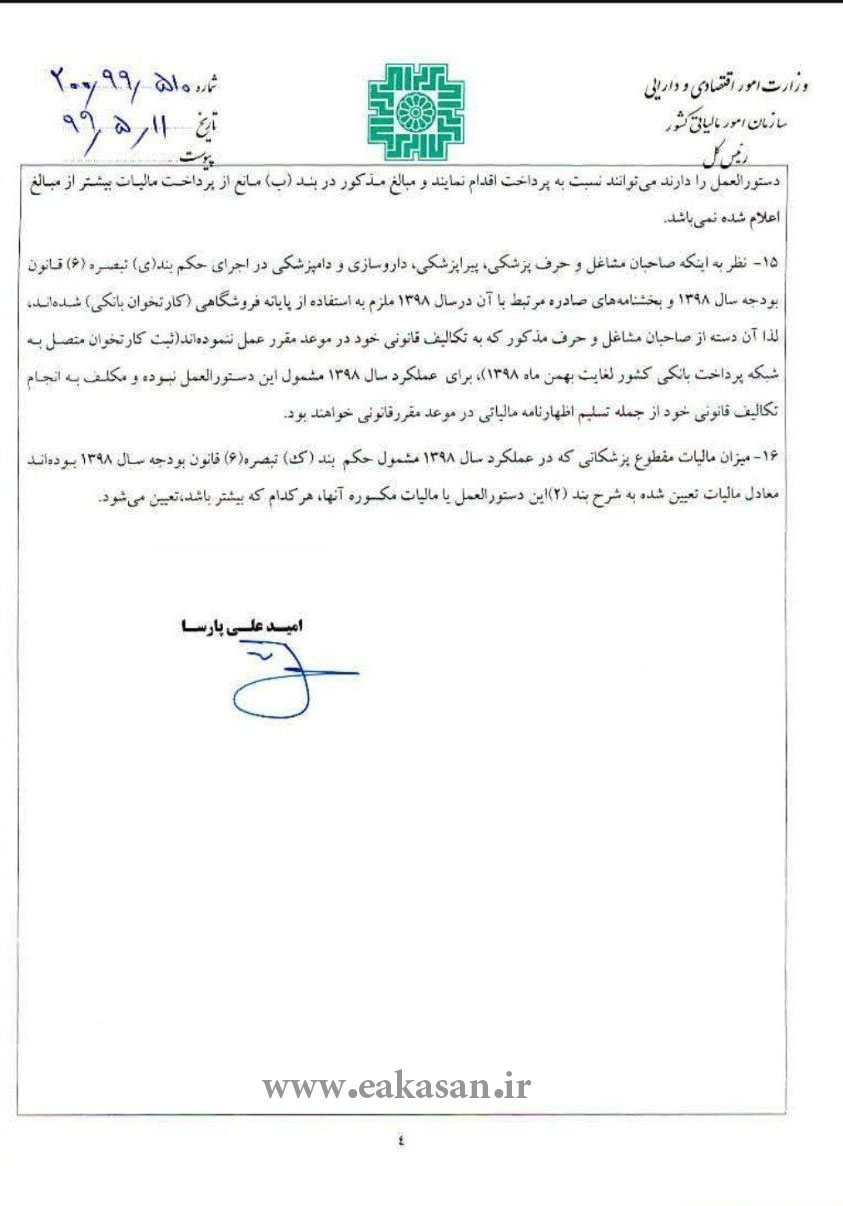 وزارت امور اقتصادی و دارایی
سازمان امور مالیاتی کشور
رئیس کل
شماره ۲۰۰/۹۹/۵۱۰
تاریخ ۹۹/۵/۱۱
پیوست
دستورالعمل را دارند می‌توانند نسبت به پرداخت اقدام نمایند و مبالغ مذکور در بند (ب) مانع از پرداخت مالیات بیشتر از مبالغ
اعلام شده نمی‌باشد.
۱۵- نظر به اینکه صاحبان مشاغل و حرف پزشکی، پیراپزشکی، داروسازی و دامپزشکی در اجرای حکم بند(ی) تبصره (۶) قانون
بودجه سال ۱۳۹۸ و بخشنامه‌های صادره مرتبط با آن درسال ۱۳۹۸ ملزم به استفاده از پایانه فروشگاهی (کارتخوان بانکی) شده‌اند،
لذا آن دسته از صاحبان مشاغل و حرف مذکور که به تکالیف قانونی خود در موعد مقرر عمل ننموده‌اند(ثبت کارتخوان متصل به
شبکه پرداخت بانکی کشور لغایت بهمن ماه ۱۳۹۸)، برای عملکرد سال ۱۳۹۸ مشمول این دستورالعمل نبوده و مکلف به انجام
تکالیف قانونی خود از جمله تسلیم اظهارنامه مالیاتی در موعد مقررقانونی خواهند بود.
۱۶- میزان مالیات مقطوع پزشکانی که در عملکرد سال ۱۳۹۸ مشمول حکم بند (ک) تبصره(۶) قانون بودجه سال ۱۳۹۸ بوده‌اند
معادل مالیات تعیین شده به شرح بند (۲)این دستورالعمل یا مالیات مکسوره آنها، هرکدام که بیشتر باشد،تعیین می‌شود.
امید علی پارسا
www.eakasan.ir
٤